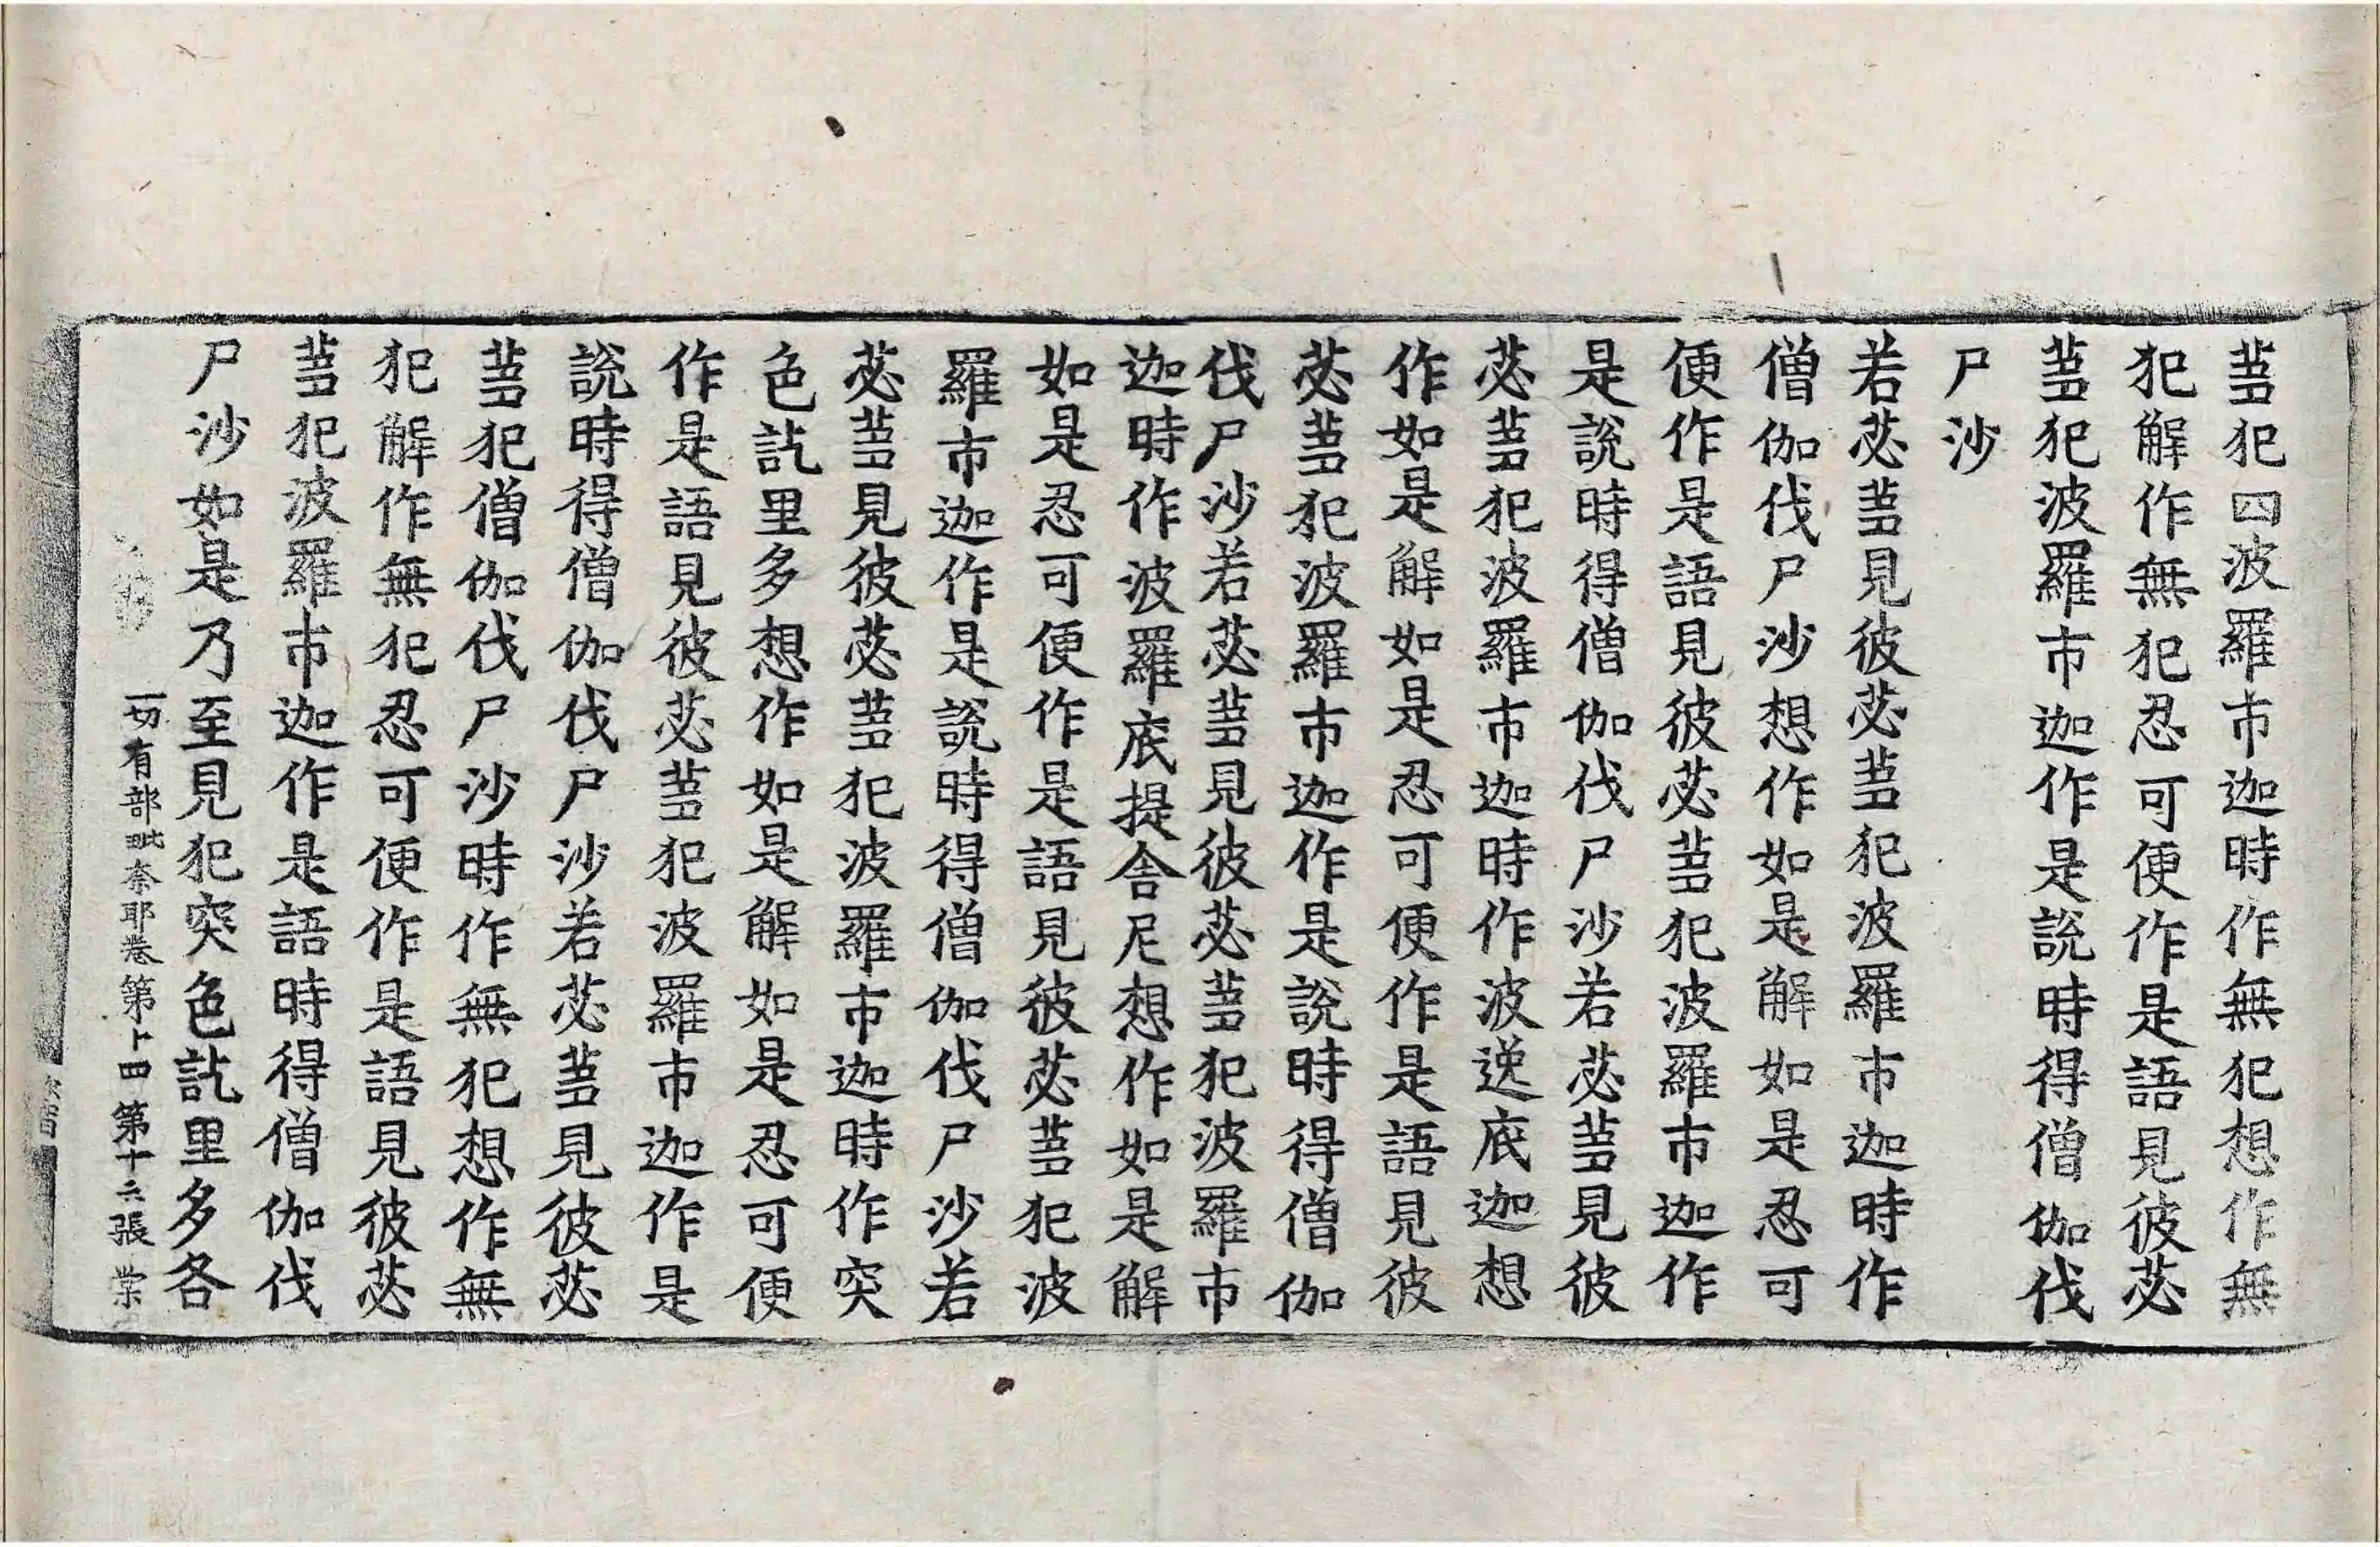 蒭犯四波羅市迦時作無犯想作無
犯解作無犯忍可便作是語見彼苾
蒭犯波羅市迦作是說時得僧伽伐
尸沙
若苾蒭見彼苾蒭犯波羅市迦時作
僧伽伐尸沙想作如是解如是忍可
便作是語見彼苾蒭犯波羅市迦作
是說時得僧伽伐尸沙若苾蒭見彼
苾蒭犯波羅市迦時作波逸底迦想
作如是解如是忍可便作是語見彼
苾蒭犯波羅市迦作是說時得僧伽
伐尸沙若苾蒭見彼苾蒭犯波羅市
迦時作波羅底提舍尼想作如是解
如是忍可便作是語見彼苾蒭犯波
羅市迦作是說時得僧伽伐尸沙若
苾蒭見彼苾蒭犯波羅市迦時作突
色訖里多想作如是解如是忍可便
作是語見彼苾蒭犯波羅市迦作是
說時得僧伽伐尸沙若苾蒭見彼苾
蒭犯僧伽伐尸沙時作無犯想作無
犯解作無犯忍可便作是語見彼苾
蒭犯波羅市迦作是語時得僧伽伐
尸沙如是乃至見犯突色訖里多各
一切有部毗奈耶卷第十四 第十六張 業